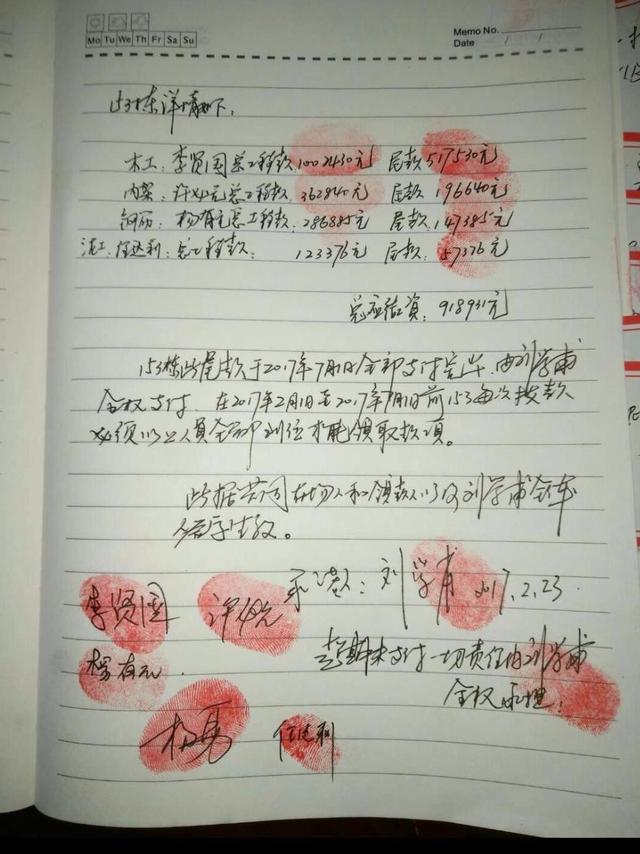 Mo Tu We Th Fr Sa Su
Memo No.
Date / /
153栋详情如下,
木工:李贤国总工程款1002430元 尾款517530元
内架:许 元总工程款362840元 尾款196640元
钢筋:杨有元总工程款286885元 尾款147385元
泥工:任达利:总工程款:123376元 尾款:57376元
总应结资:918931元
153栋此尾款于2017年7月1日全部支付完毕,由刘学甫
全权支付。在2017年2月1日至2017年7月1日前153每次拨款
必须以上人员全部到位才能领取款项。
此据共同在场人和领款人以及刘学甫全体
签字生效。
承诺人:刘学甫 2017.2.23.
李贤国 许 元
超期未支付一切责任由刘学甫
杨有元
全权承担.
任达利